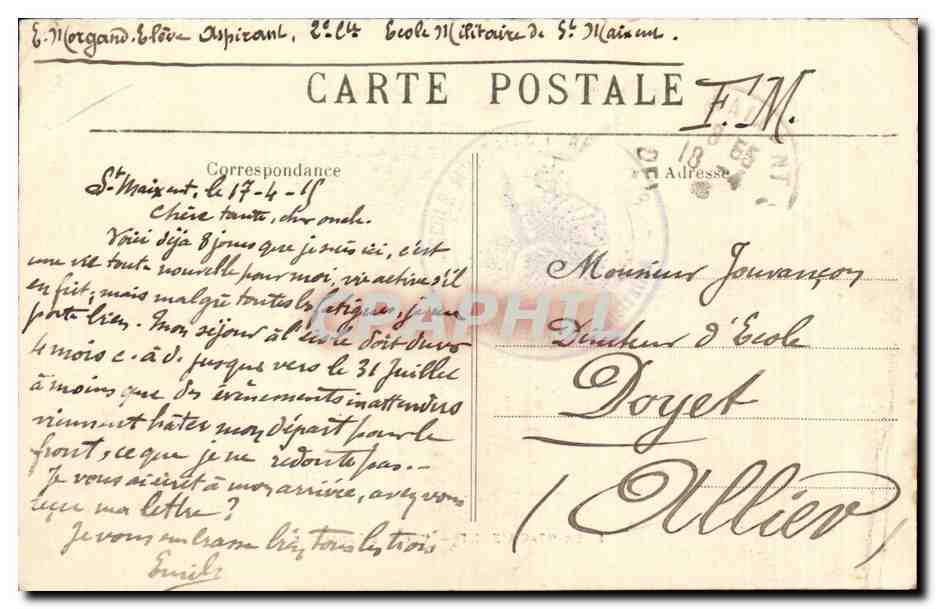 E. Morgand. Elève Aspirant, 2e Cie Ecole Militaire de St Maixent.
CARTE POSTALE
F.M.
Correspondance
St Maixent, le 17-4-15
Chère tante, cher oncle.
Voici déjà 8 jours que je suis ici, c'est
une vie toute nouvelle pour moi, vie active s'il
en fut, mais malgré toutes les fatigues, je me
porte bien. Mon séjour à l'école doit durer
4 mois c. à d. jusque vers le 31 Juillet
à moins que des évènements inattendus
viennent hâter mon départ pour le
front, ce que je ne redoute pas. -
Je vous ai écrit à mon arrivée, avez vous
reçu ma lettre ?
Je vous embrasse bien tous les trois
Emile
Adresse
Monsieur Jouvançon
Directeur d'Ecole
Doyet
(Allier)
CPAPHIL